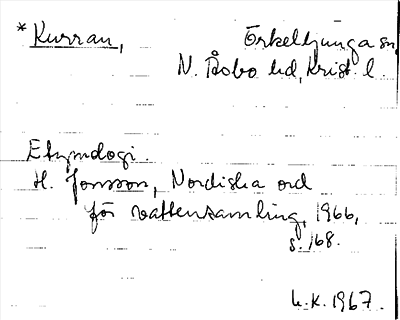 *Kurran, Örkelljunga sn,
N. Åsbo hd, Krist. l.
Etymologi.
H. Jonsson, Nordiska ord
för vattensamling, 1966,
s. 168.
L.K. 1967.